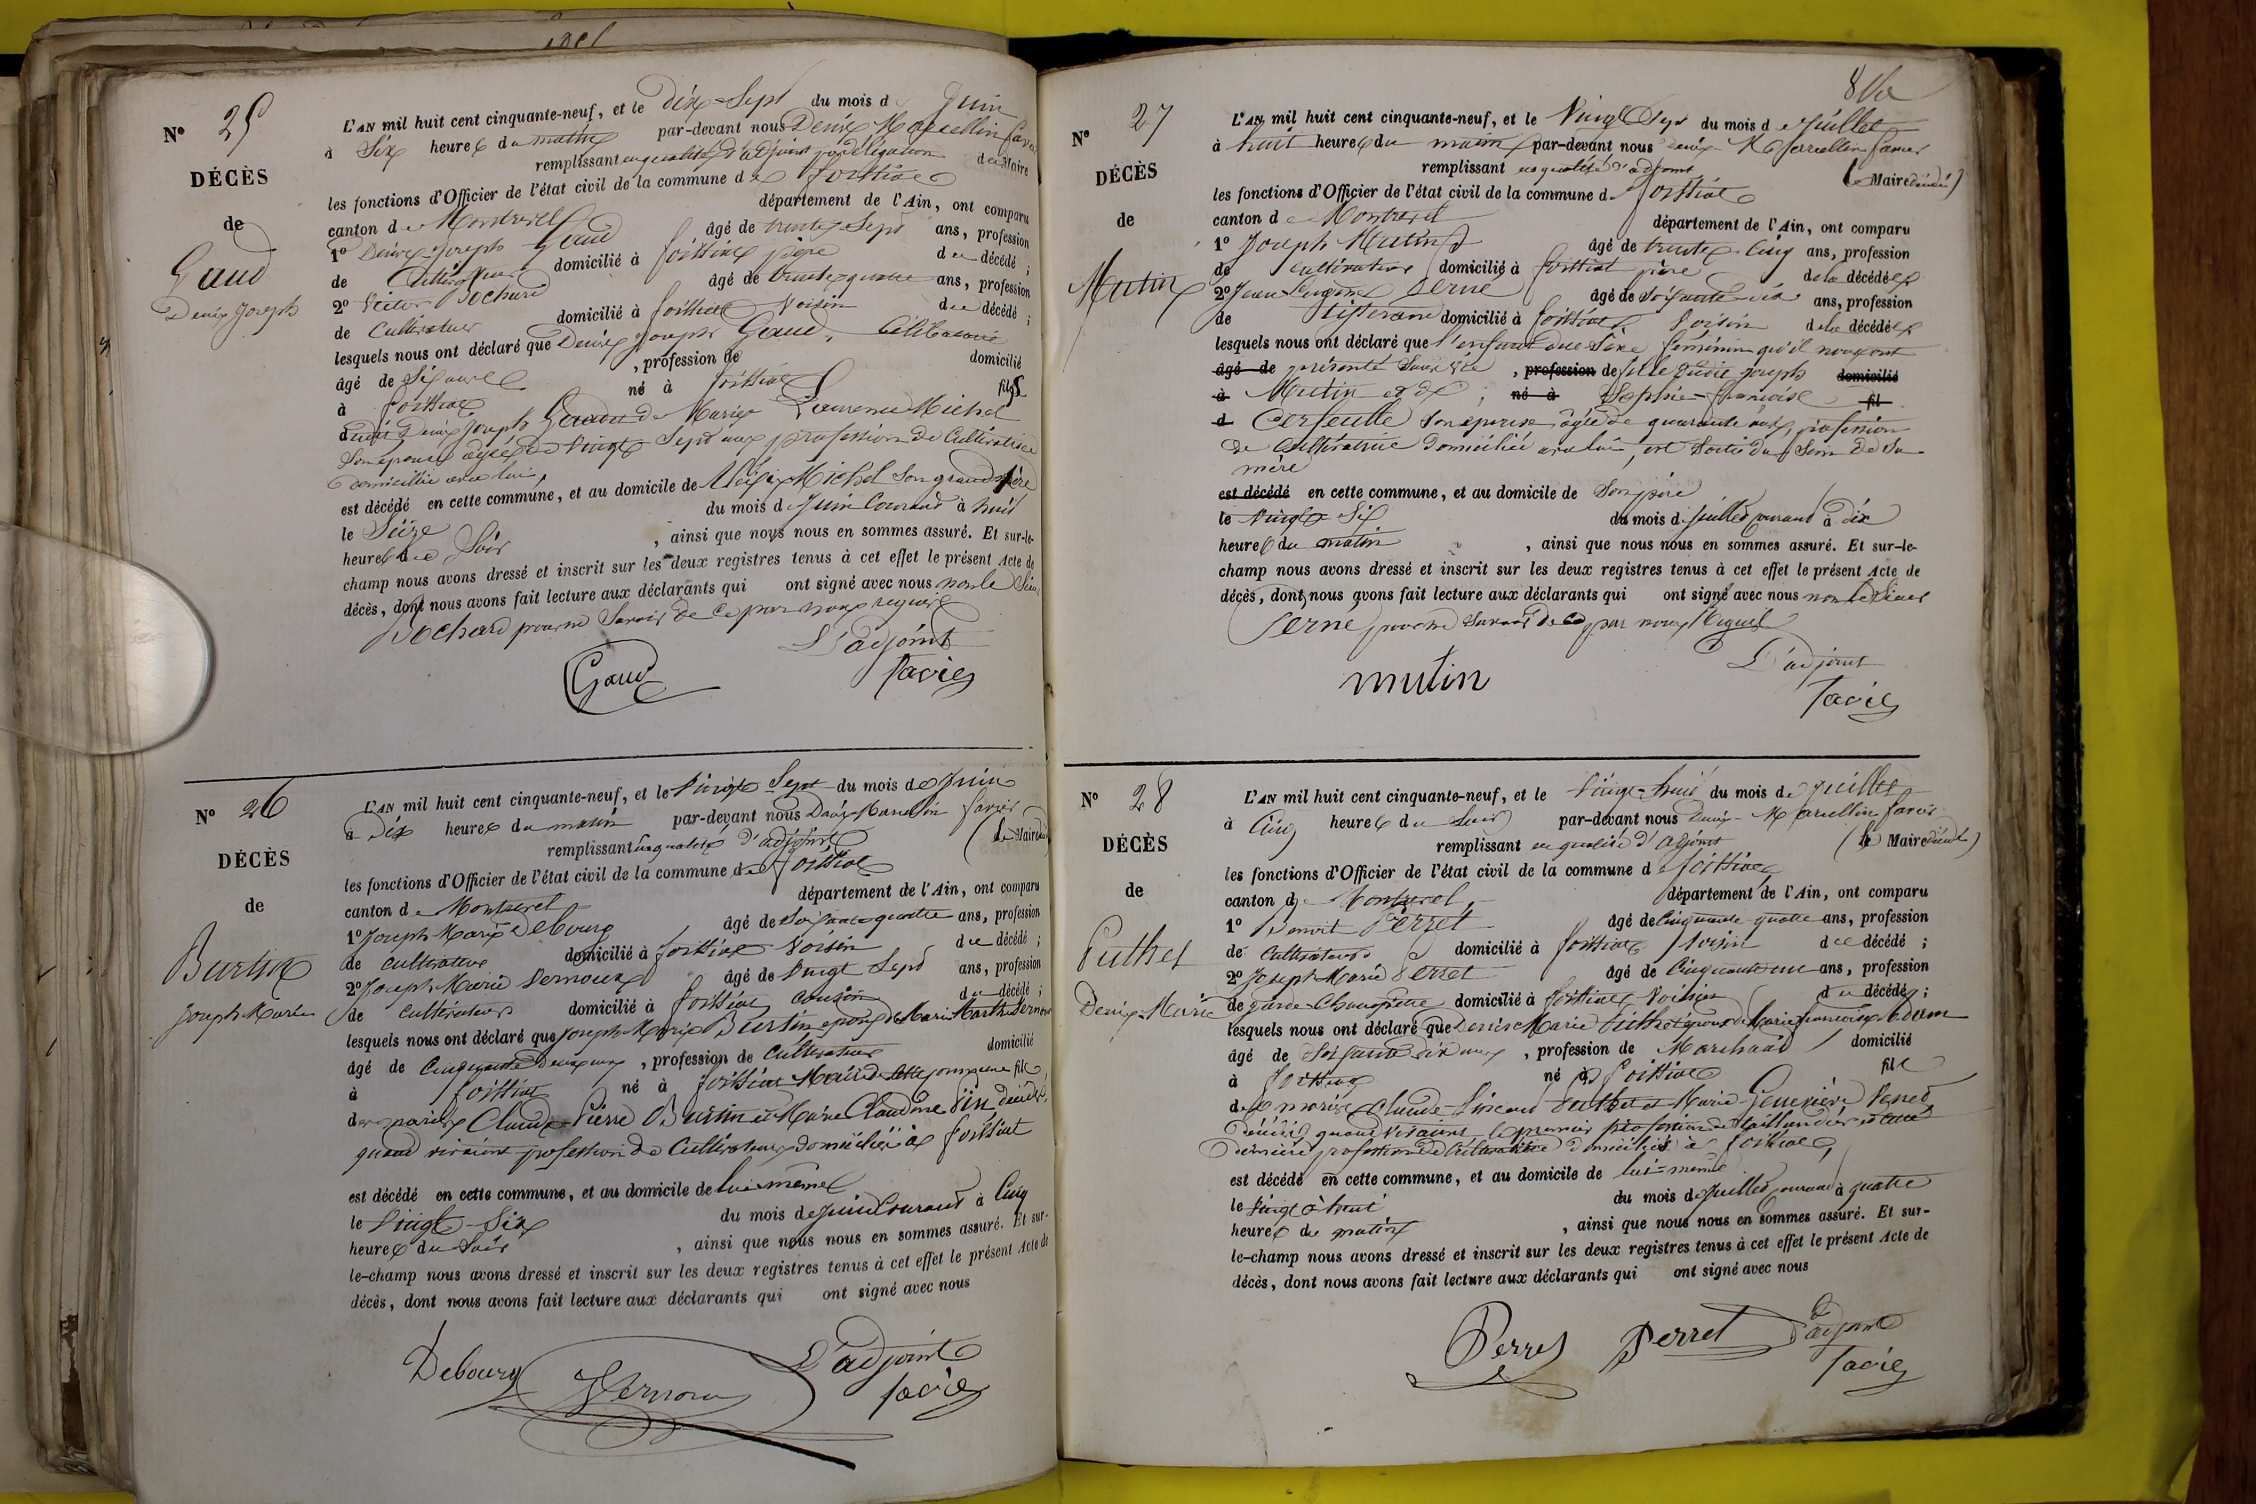 N° 25
DÉCÈS
de
Gaud
Denis Joseph
L'AN mil huit cent cinquante-neuf, et le dix-Sept du mois de Juin
à Six heures du matin par-devant nous Denis Marcellin favier
remplissant en qualité d'adjoint par délégation du Maire
les fonctions d'Officier de l'état civil de la commune de foissiat
canton de Montrevel département de l'Ain, ont comparu
1° Denis Joseph Gaud âgé de trente-Sept ans, profession
de Cultivateur domicilié à foissiat père du décédé ;
2° Victor Bochard âgé de trente-quatre ans, profession
de Cultivateur domicilié à foissiat Voisin du décédé ;
lesquels nous ont déclaré que Denis Joseph Gaud, Célibataire
âgé de Six ans , profession de domicilié
à foissiat né à foissiat fils
dudit Denis Joseph Gaud et de Marie Laurence Michel
Son épouse âgée de Vingt Sept ans profession de Cultivatrice
Domiciliée avec lui,
est décédé en cette commune, et au domicile de Michel Son grand père
le Seize du mois de Juin Courant à huit
heures du Soir , ainsi que nous nous en sommes assuré. Et sur-le-
champ nous avons dressé et inscrit sur les deux registres tenus à cet effet le présent Acte de
décès, dont nous avons fait lecture aux déclarants qui ont signé avec nous non le Sieur
Bochard pour ne Savoir de ce par nous requis
L'adjoint
Gaud favier
N° 26
DÉCÈS
de
Burtin
Joseph Marie
L'AN mil huit cent cinquante-neuf, et le Vingt Sept du mois de Juin
à Dix heures du matin par-devant nous Denis Marcellin favier
remplissant en qualité d'adjoint (le Maire
les fonctions d'Officier de l'état civil de la commune de foissiat
canton de Montrevel département de l'Ain, ont comparu
1° Joseph Marie Debourg âgé de Soixante quatre ans, profession
de cultivateur domicilié à foissiat Voisin du décédé ;
2° Joseph Marie Vernoux âgé de Vingt Sept ans, profession
de cultivateur domicilié à foissiat Cousin du décédé ;
lesquels nous ont déclaré que Joseph Marie Burtin époux de Marie Marthe Vernoux
âgé de Cinquante Deux ans , profession de Cultivateur domicilié
à foissiat né à foissiat Mairie de cette commune fils
de mariés Claude-Pierre Burtin et Marie Claudine décédés,
quand vivaient profession de Cultivateurs domiciliés à foissiat
est décédé en cette commune, et au domicile de lui même
le Vingt-Six du mois de Juin Courant à Cinq
heures du Soir , ainsi que nous nous en sommes assuré. Et sur-
le-champ nous avons dressé et inscrit sur les deux registres tenus à cet effet le présent Acte de
décès, dont nous avons fait lecture aux déclarants qui ont signé avec nous
Debourg Vernoux L'adjoint
favier
N° 27
DÉCÈS
de
Mutin
L'AN mil huit cent cinquante-neuf, et le Vingt Sept du mois de Juillet
à huit heures du matin par-devant nous Denis Marcellin favier
remplissant en qualité d'adjoint (le Maire décédé)
les fonctions d'Officier de l'état civil de la commune de foissiat
canton de Montrevel département de l'Ain, ont comparu
1° Joseph Mutin âgé de trente-Cinq ans, profession
de cultivateur domicilié à foissiat père de la décédée
2° Jean Serne âgé de Soixante-dix ans, profession
de tisserand domicilié à foissiat Voisin de la décédée
lesquels nous ont déclaré que l'enfant du Sexe féminin qu'il nous ont
âgé de présenté Sans vie , profession de fille dudit Joseph domicilié
à Mutin et de ; né à Sophie-françoise fil
d Cerfeulle Son épouse âgée de quarante ans, profession
de Cultivatrice Domiciliée avec lui, est Sortie du Sein de Sa
mère
est décédé en cette commune, et au domicile de Son père
le Vingt Six du mois de Juillet courant à dix
heures du matin , ainsi que nous nous en sommes assuré. Et sur-le-
champ nous avons dressé et inscrit sur les deux registres tenus à cet effet le présent Acte de
décès, dont nous avons fait lecture aux déclarants qui ont signé avec nous non le Sieur
Serne pour ne Savoir de ce par nous Requis
L'adjoint
mutin favier
N° 28
DÉCÈS
de
Puthet
Denis-Marie
L'AN mil huit cent cinquante-neuf, et le Vingt-huit du mois de Juillet
à Cinq heures du Soir par-devant nous Denis-Marcellin favier
remplissant en qualité d'adjoint (le Maire décédé)
les fonctions d'Officier de l'état civil de la commune de foissiat
canton de Montrevel département de l'Ain, ont comparu
1° Benoit Perret âgé de Cinquante-quatre ans, profession
de Cultivateur domicilié à foissiat Voisin du décédé ;
2° Joseph Marie Perret âgé de Cinquante un ans, profession
de garde-Champêtre domicilié à foissiat Voisin du décédé ;
lesquels nous ont déclaré que Denis Marie Puthet époux de Marie françoise
âgé de Soixante dix ans , profession de Marchand domicilié
à foissiat né à foissiat fils
de mariés Claude-Vincent Puthet et Marie-Geneviève
Décédés quand vivaient le premier profession de taillandier et cette
dernière profession de Cultivatrice Domiciliés à foissiat,
est décédé en cette commune, et au domicile de lui-même
le Vingt-huit du mois de Juillet courant à quatre
heures du matin , ainsi que nous nous en sommes assuré. Et sur-
le-champ nous avons dressé et inscrit sur les deux registres tenus à cet effet le présent Acte de
décès, dont nous avons fait lecture aux déclarants qui ont signé avec nous
Perret Perret L'adjoint
favier